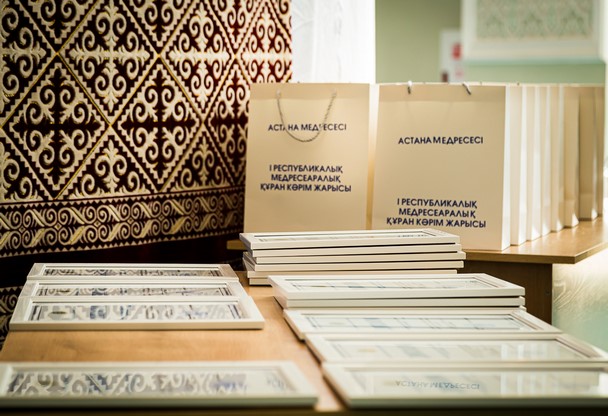 АСТАНА МЕДРЕСЕСІ
І РЕСПУБЛИКАЛЫҚ
МЕДРЕСЕАРАЛЫҚ
ҚҰРАН КӘРІМ ЖАРЫСЫ
АСТАНА МЕДРЕСЕСІ
І РЕСПУБЛИКАЛЫҚ
МЕДРЕСЕАРАЛЫҚ
ҚҰРАН КӘРІМ ЖАРЫСЫ